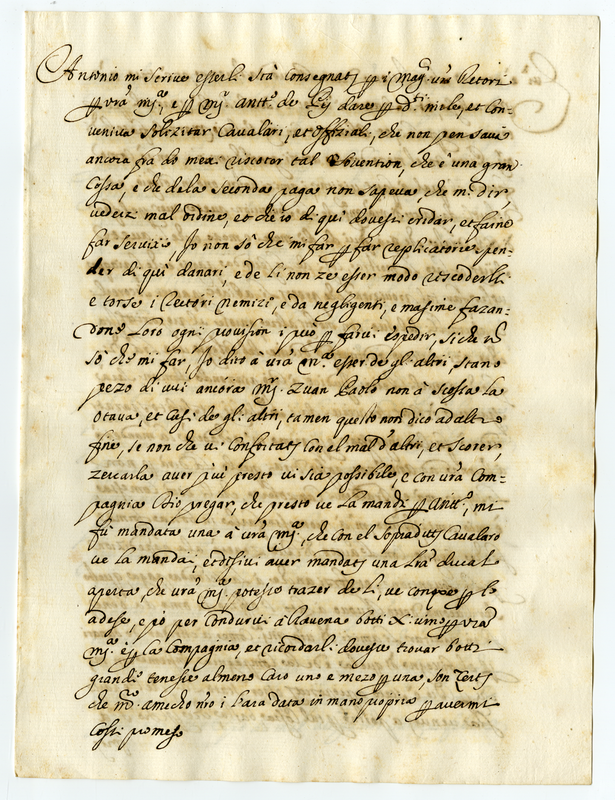 Antonio mi scrive esserli stà consegnati p i mag.ci vri Retori
p vrã mj.a, e p mj. antt.o de
venivia solizitar Cavalari, et offizial, che non pensava
ancora fra do mexi riscoter tal sovention, che è una gran
Cossa, e che dela seconda paga non sapeva, che mi dir,
vederi mal ordine, et che io di quì dovesi cridar, et faine
far servixi, Io non sò che mi far p far replicatorie spen=
der di quì danari, e de lì non ze esser modo rescoderli
e torse i Rectori nemizi, e da negligenti, e masime fazan=
done Loro ogni provision i può p farvi espedir, si che nõ
sò che mi far, Io dito à vrã mj.a esser de gl' altri, stano
pezo di vui ancora mj. Zuan Paolo non à scosso la
otava, et Cusì de gl' altri, tamen questo non dico ad altro
fine, se non che vi Confortati Con el mal d'altri, et scorer,
zercarla aver più presto vi sia possibile, e con vrã Com=
pagnia Dio pregar, che presto ve la mandi p Antt.o, mi
fù mandata una à vrã mj.a, che con el sopraditi Cavalaro
ve la mandai, et dissivi aver mandati una Lrã ducal
aperta, che vrã mj.a potesse trazer de lì, ve
adesso, e pò per Condurvi à Ravena botti X. vino p vrã
mj.a e p la Compagnia, et ricordarli dovesse trovar botti
grandi tenesse almeno Caro uno e mezo p una, son Certi
che m.o amicho nro i l'ara data in mano propria p avermi
Cossì promesso